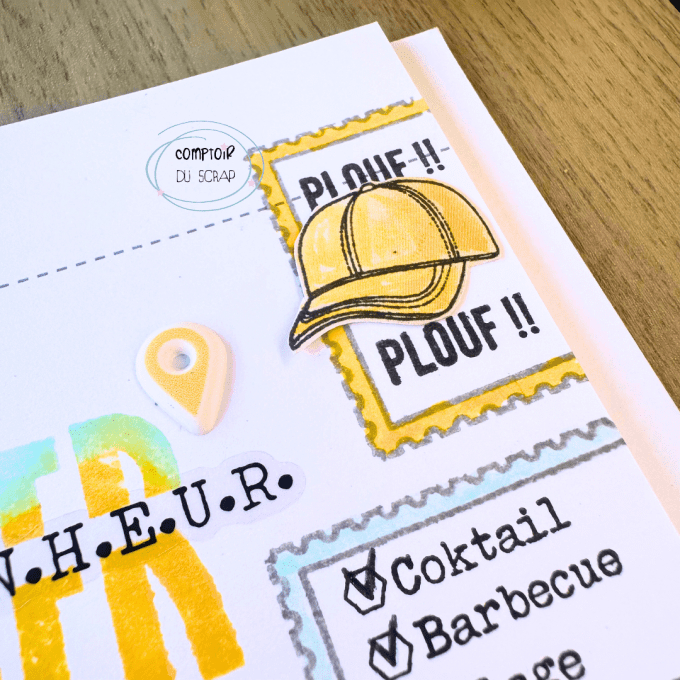 COMPTOIR
DU SCRAP
PLOUF !!
PLOUF !!
N.H.E.U.R.
Coktail
Barbecue